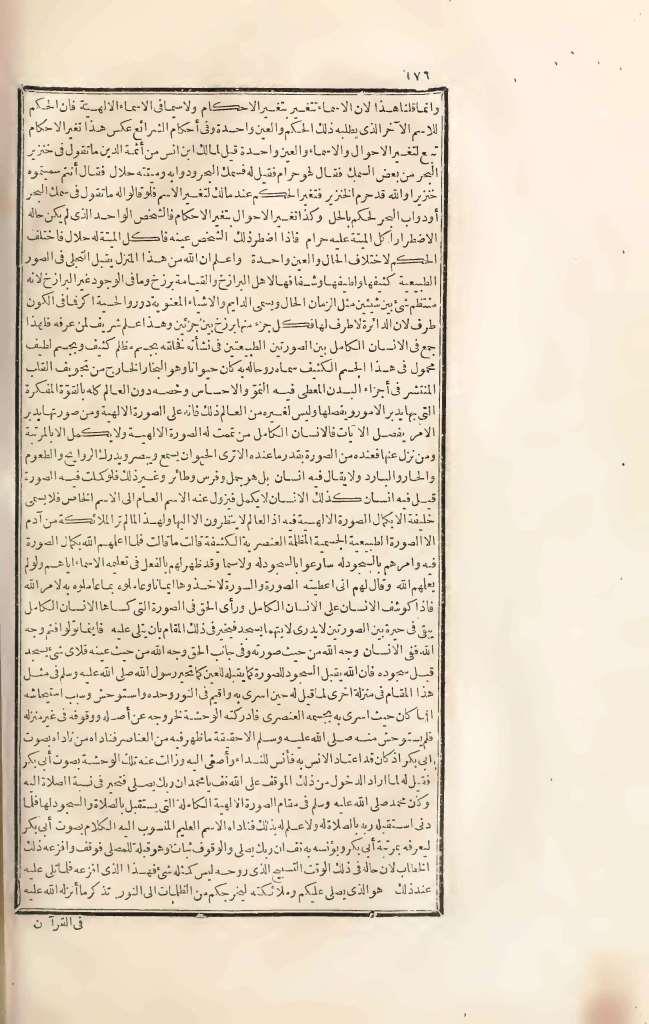 ١٧٦
وانما قلنا هذا لان الاسماء تتغير بتغير الاحكام ولاسيما فى الاسماء الالهية فان الحكم
للاسم الآخر الذى يطلبه ذلك الحكم والعين واحدة وفى أحكام الشرائع عكس هذا تغير الاحكام
تبع لتغير الاحوال والاسماء والعين واحدة قيل لمالك ابن انس من أئمة الدين ما تقول فى خنزير
البحر من بعض السمك فقال هو حرام فقيل له فسمك البحر ودوابه وميتته حلال فقال أنتم سميتموه
خنزيرا والله قد حرم الخنزير فتغير الحكم عند مالك لتغير الاسم فلو قالوا له ما تقول فى سمك البحر
أو دواب البحر لحكم بالحل وكذا تغير الاحوال يتغير الاحكام فالشخص الواحد الذى لم يكن حاله
الاضطرار أكل الميتة عليه حرام فاذا اضطر ذلك الشخص عينه فأكل الميتة له حلال فاختلف
الحكم لاختلاف الحال والعين واحدة واعلم ان الله من هذا المنزل يقبل التجلى فى الصور
الطبيعية كثيفها ولطيفها وشفافها لاهل البرازخ والقيامة برزخ وما فى الوجود غير البرازخ لانه
منتظم شئ بين شيئين مثل الزمان الحال ويسمى الدايم والاشياء المعنوية دور والحسية اكر فما فى الكون
طرف لان الدائرة لا طرف لها فكل جزء منها برزخ بين جزئين وهذا علم شريف لمن عرفه فلهذا
جمع فى الانسان الكامل بين الصورتين الطبيعتين فى نشأته فخلقه بجسم مظلم كثيف وبجسم لطيف
محمول فى هذا الجسم الكثيف سماه روحا له به كان حيوانا وهو البخار الخارج من تجويف القلب
المنتشر فى أجزاء البدن المعطى فيه النمو والاحساس وخصه دون العالم كله بالقوة المفكرة
التى بها يدبر الامور ويفصلها وليس لغيره من العالم ذلك فانه على الصورة الالهية ومن صورتها يدبر
الامر يفصل الآيات فالانسان الكامل من تمت له الصورة الالهية ولا يكمل الا بالمرتبة
ومن نزل عنها فعنده من الصورة بقدر ما عنده الا ترى الحيوان يسمع ويبصر ويدرك الروايح والطعوم
والحار والبارد ولا يقال فيه انسان بل هو جمل وفرس وطائر وغير ذلك فلو كملت فيه الصورة
قيل فيه انسان كذلك الانسان لا يكمل فيزول عنه الاسم العام الى الاسم الخاص فلا يسمى
خليفة الا بكمال الصورة الالهية فيه اذ العالم لا ينظرون الا اليها ولهذا لما لم تر الملائكة من آدم
الا الصورة الطبيعية الجسمية المظلمة العنصرية الكثيفة قالت ما قالت فلما اعلمهم الله بكمال الصورة
فيه وامرهم بالسجود له سارعوا بالسجود له ولاسيما وقد ظهر لهم بالفعل فى تعليمه الاسماء اياهم ولو لم
يعلمهم الله وقال لهم انى اعطيته الصورة والسورة لاخذوها ايمانا وعاملوه بما عاملوه به لامر الله
فاذا كوشف الانسان على الانسان الكامل ورأى الحق فى الصورة التى كساها الانسان الكامل
يبقى فى حيرة بين الصورتين لا يدرى لايتهما يسجد فيخير فى ذلك المقام بان يتلى عليه فأينما تولوا فثم وجه
الله ففى الانسان وجه الله من حيث صورته وفى جانب الحق وجه الله من حيث عينه فلاى شئ يسجد
قبل سجوده فان الله يقبل السجود للصورة كما يقبله للعين كما تحير رسول الله صلى الله عليه وسلم فى مثل
هذا المقام فى منزلة اخرى لما قيل له حين اسرى به واقيم فى النور وحده واستوحش وسبب استيحاشه
انما كان حيث اسرى به بجسمه العنصرى فادركته الوحشة لخروجه عن أصله ووقوفه فى غير منزله
فلم يستوحش منه صلى الله عليه وسلم الا حقيقة ما ظهر فيه من العناصر فناداه من ناداه بصوت
ابى بكر اذ كان قد اعتاد الانس به فأنس للنداء وأصغى اليه وزالت عنه تلك الوحشة بصوت أبى بكر
فقيل له لما اراد الدخول من ذلك الموقف على الله قف يا محمد ان ربك يصلى فتحير فى نسبة الصلاة اليه
وكان محمد صلى الله عليه وسلم فى مقام الصورة الالهية الكاملة التى يستقبل بالصلاة والسجود لها فلما
دنى استقبله ربه بالصلاة له ولا علم له بذلك فناداه الاسم العليم المنسوب اليه الكلام بصوت أبى بكر
ليعرفه بمرتبة أبى بكر ويؤنسه به قف ان ربك يصلى والوقوف ثبات وهو قبلة للمصلى فوقف وافزعه ذلك
الخطاب لان حاله فى ذلك الوقت التسبيح الذى روحه ليس كمثله شئ فهذا الذى افزعه فلما تلى عليه
عند ذلك هو الذى يصلى عليكم وملائكته ليخرجكم من الظلمات الى النور تذكر ما أنزله الله عليه
فى القرآن